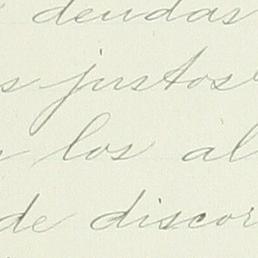 deudas
s justos
los al
de discor